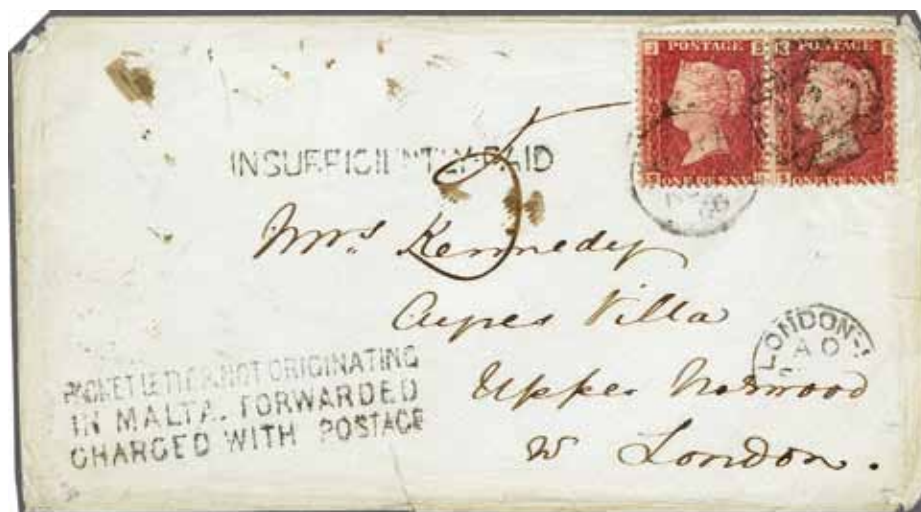 POSTAGE POSTAGE
ONE PENNY ONE PENNY
INSUFFICIENTLY PAID
5
Mrs Kennedy
Villa
Upper Norwood
London.
LONDON
AO
PACKET LETTER NOT ORIGINATING
IN MALTA. FORWARDED
CHARGED WITH POSTAGE